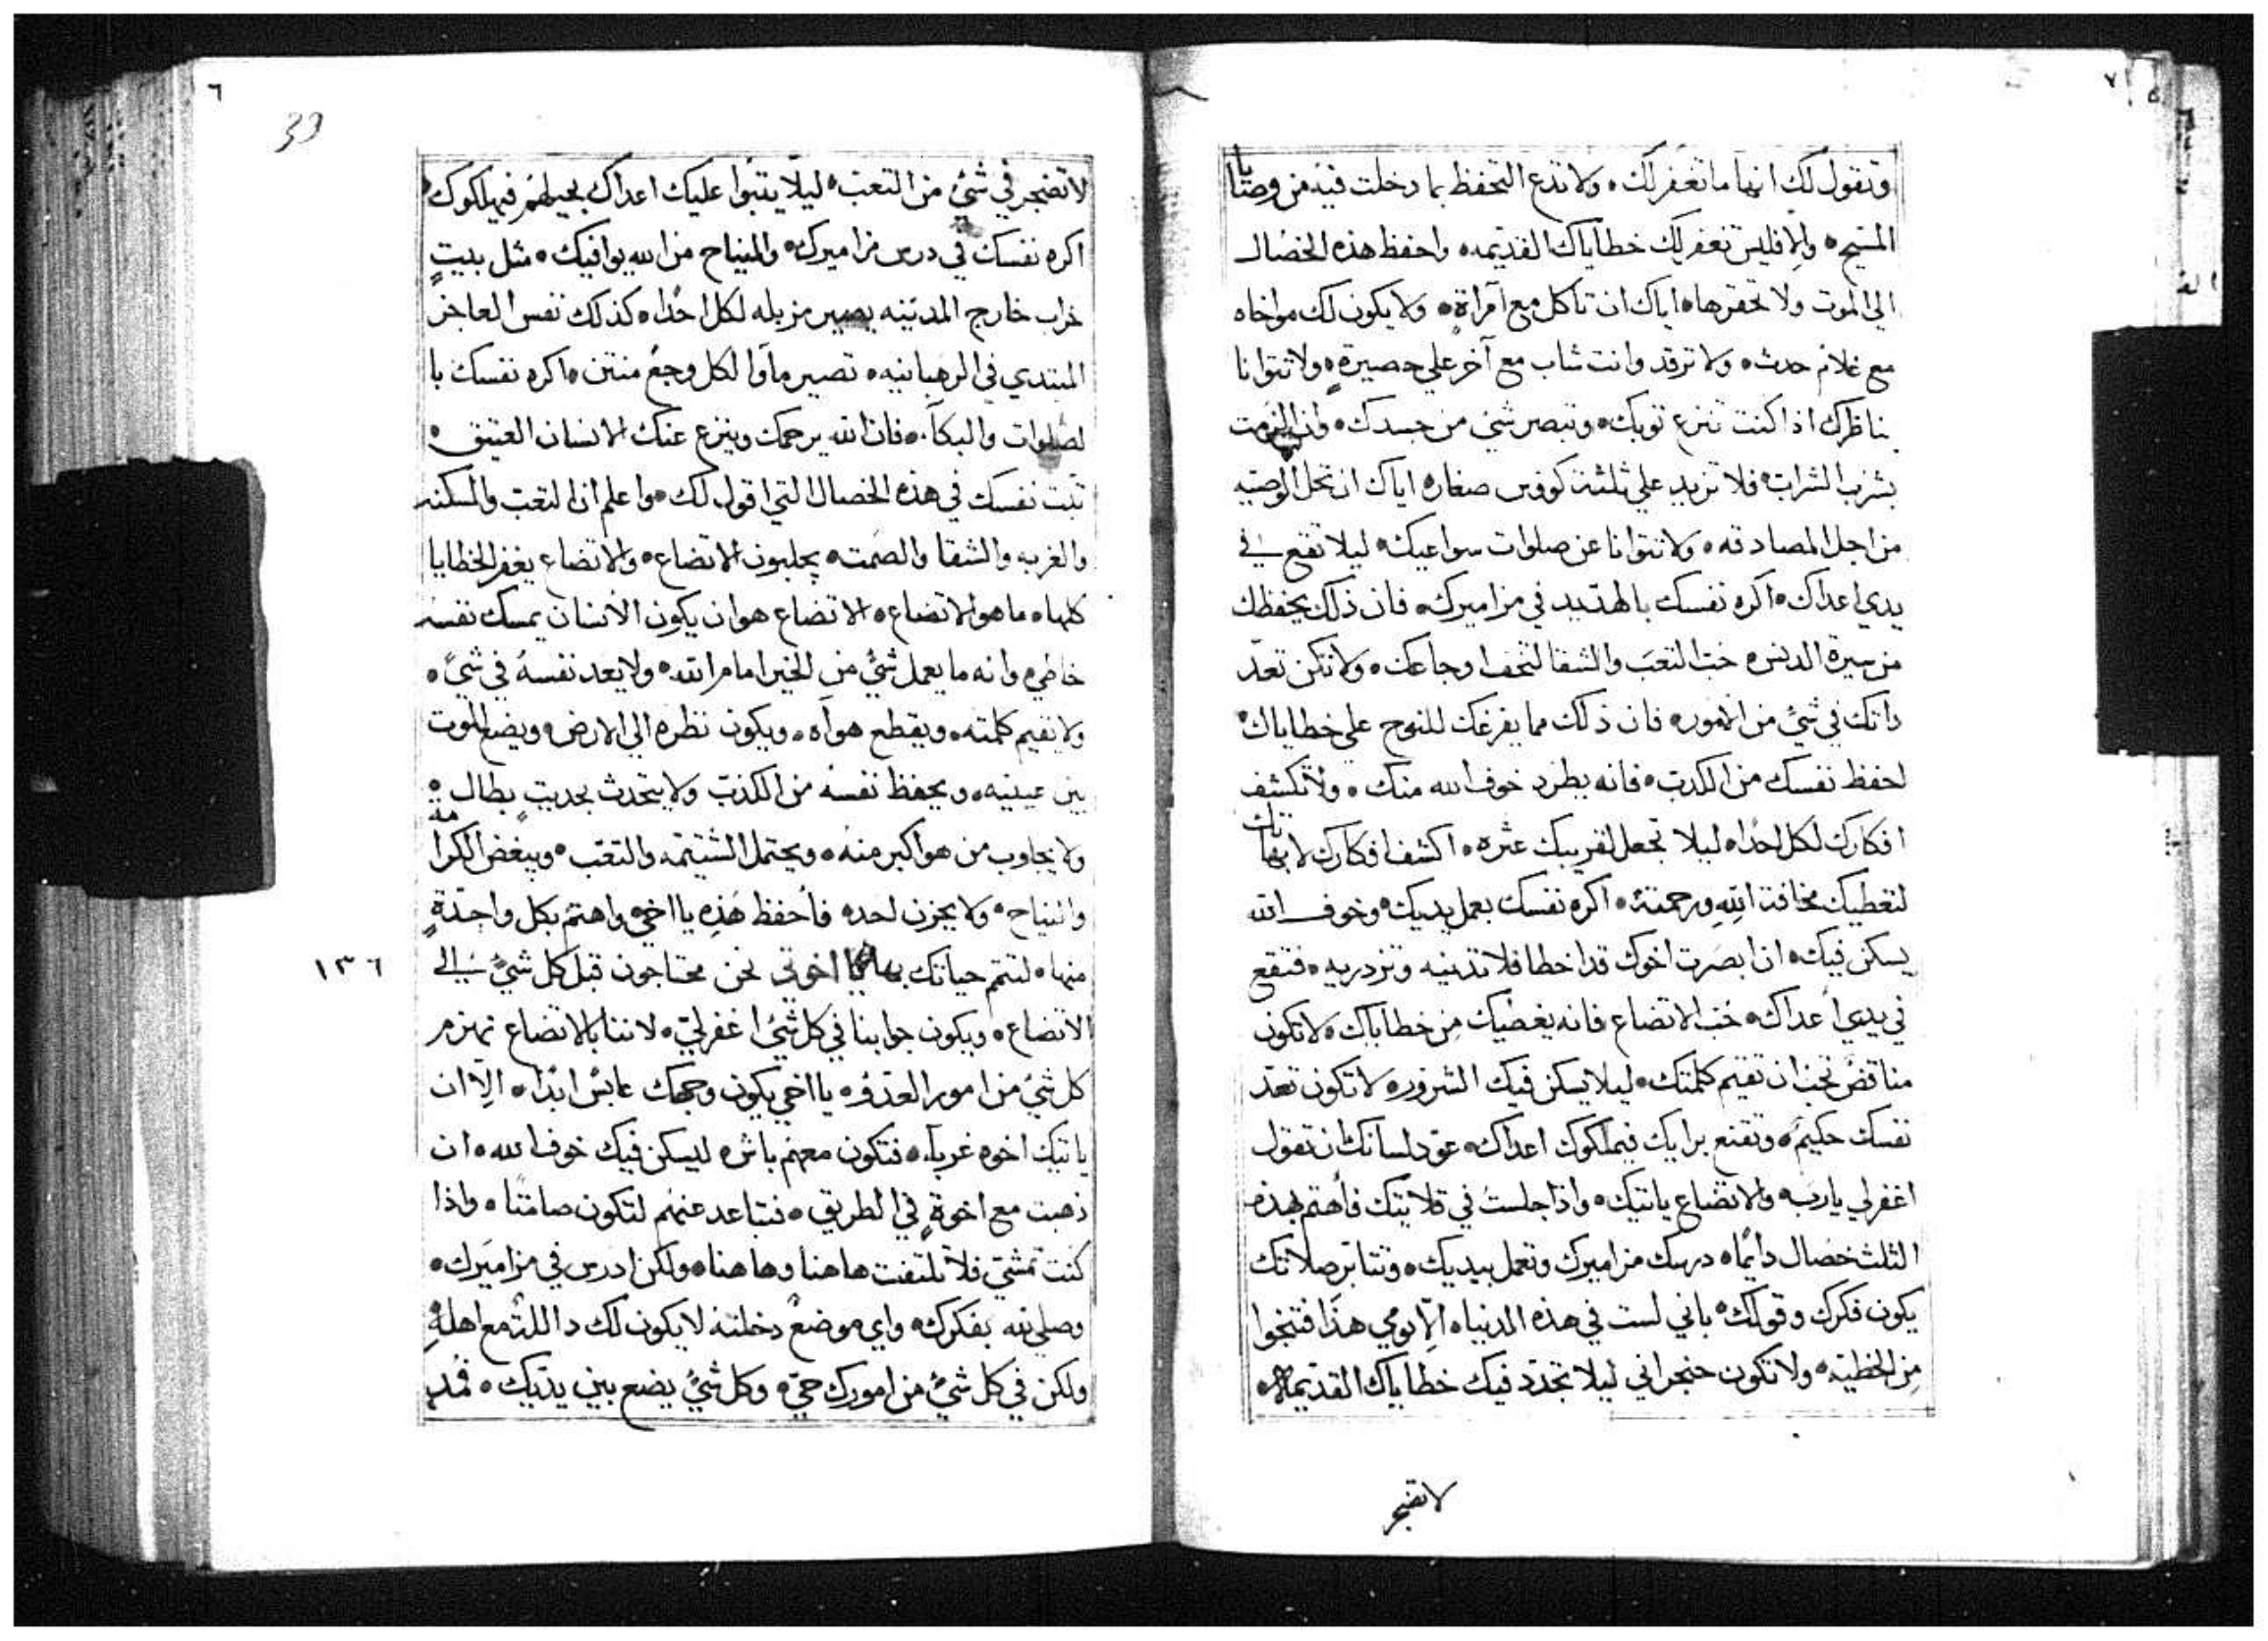 ٧
وتقول لك انها ما تغفر لك ولا تدع التحفظ بما دخلت فيه من وصايا
المسيح والا فليس تغفر لك خطاياك القديمه واحفظ هذه الخصال
الي الموت ولا تحقرها اياك ان تاكل مع امراة ولا يكون لك مواخاه
مع غلام حدث ولا ترقد وانت شاب مع آخر علي حصيرة ولا تتوانا
بناظرك اذا كنت تنزع توبك وتبصر شي من جسدك وان الزمت
بشرب الشراب فلا تزيد علي ثلثة كووس صغار اياك ان تحل الوصيه
من اجل المصادقه ولا تتوانا عن صلوات سواعيك ليلا تقع في
يدي اعداك اكره نفسك بالهديد في مزاميرك فان ذلك يحفظك
من سيرة الدنس حب التعب والشقا لتخف اوجاعك ولا تكن تعد
ذاتك في شي من الامور فان ذلك مما يفرغك للنوح علي خطاياك
احفظ نفسك من الكدب فانه يطرد خوف الله منك ولا تكشف
افكارك لكل احد ليلا تجعل لقريبك عثره اكشف افكارك لابهاتك
لتعطيك مخافة الله ورحمته اكره نفسك بعمل يديك وخوف الله
يسكن فيك ان ابصرت اخوك قد اخطا فلا تدينه وتزدريه فتقع
في يدي اعداك حب الاتضاع فانه يغطيك من خطاياك لا تكون
مناقض تحب ان تقيم كلمتك ليلا يسكن فيك الشرور لا تكون تعد
نفسك حكيم وتقنع برايك فيملكوك اعداك عود لسانك ان تقول
اغفر لي يا رب والاتضاع ياتيك واذا جلست في قلايتك فأهتم بهذه
الثلث خصال دايما درسك مزاميرك وتعمل بيديك وتتابر صلاتك
يكون فكرك وقولك باني لست في هذه الدنيا الا يومي هذا فتنجوا
من الخطيه ولا تكون حنجراني ليلا تجدد فيك خطاياك القديمه
لا تضجر
٦
33
لا تضجر في شي من التعب ليلا يتبوا عليك اعداك بحيلهم فيهلكوك
اكره نفسك في درس مزاميرك والنياح من الله يوافيك مثل بيت
خراب خارج المدينه يصير مزبله لكل احد كذلك نفس العاجز
المبتدي في الرهبانيه تصير ماوا لكل وجع منتن اكره نفسك با
لصلوات والبكآ فان الله يرحمك وينزع عنك الانسان العتيق
ثبت نفسك في هذه الخصال التي اقول لك واعلم ان التعب والمسكنه
والغربه والشقا والصمت يجلبون الاتضاع والاتضاع يغفر الخطايا
كلها ما هو الاتضاع الاتضاع هو ان يكون الانسان يمسك نفسه
خاطي وانه ما يعمل شي من الخير امام الله ولا يعد نفسه في شي
ولا يقيم كلمته ويقطع هواه ويكون نظره الي الارض ويضع الموت
بين عينيه ويحفظ نفسه من الكذب ولا يتحدث بحديث بطال
ولا يجاوب من هو اكبر منه ويحتمل الشتيمه والتعب ويبغض الكرامه
والنياح ولا يحزن لحد فأحفظ هذه يا اخي واهتم بكل واحدة
منها لتتم حياتك بها يا اخوتي نحن محتاجون قبل كل شي الي
١٣٦
الاتضاع ويكون جوابنا في كل شي اغفر لي لاننا بالاتضاع نهزم
كل شي من امور العدو يا اخي يكون وجهك عابس ابدا الا ان
ياتيك اخوه غربآ فتكون معهم باش ليسكن فيك خوف الله ان
ذهبت مع اخوة في الطريق فتباعد عنهم لتكون صامتا واذا
كنت تمشي فلا تلتفت هاهنا وهاهنا ولكن ادرس في مزاميرك
وصلي لله بفكرك واي موضع دخلته لا يكون لك دالة مع اهله
ولكن في كل شي من امورك حي وكل شي يضع بين يديك فمد